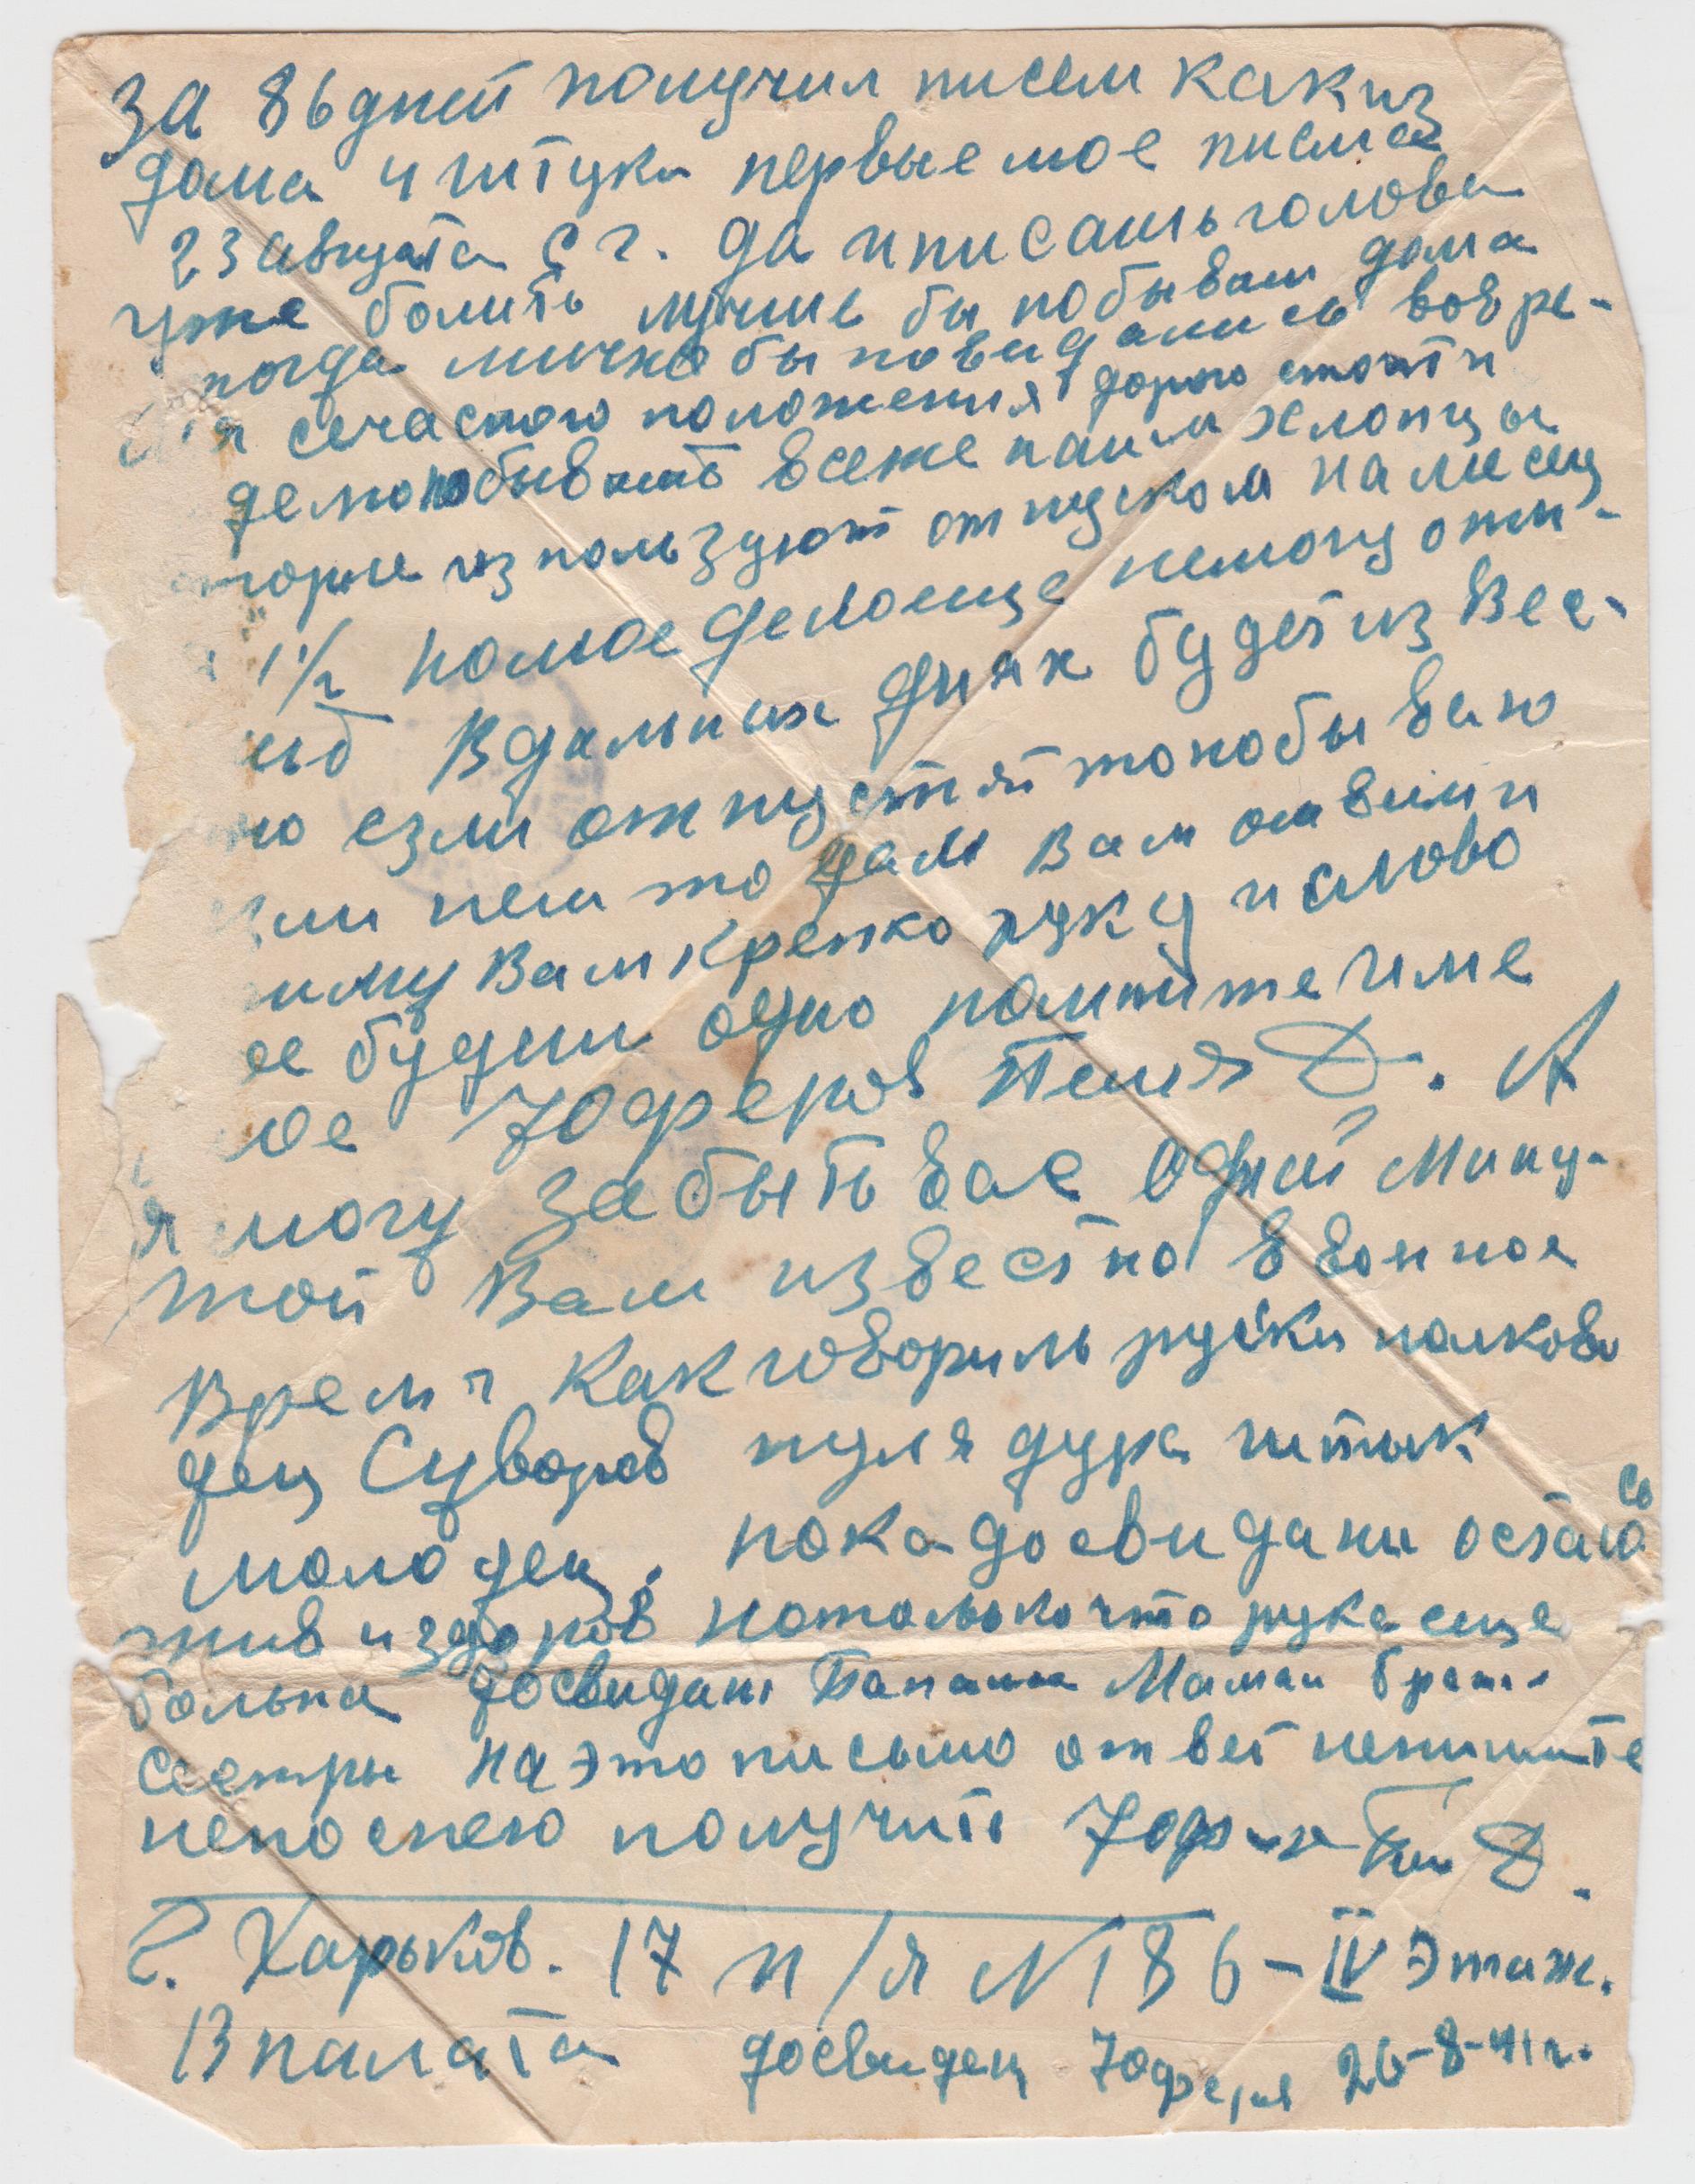 За 86 дней получил писем как из
дома 4 штуки первые мое писма
23 августа с г. да и писать голова
уже болить лучше бы побывал дома
тогда лично бы повидались вовре-
сечасного положения дорого стоит и
дело побывать всеже наши хлопцы
изпользуют отпуском на месец
1½ но мое дело еще немогу опи-
В дальних днях будет из Вес-
езли отпустят то побываю
или нет то дам Вам ответ и
Вам крепко руку и слово
будет одно помните име
Юферов Петя Д. А
я могу забыть вас одной мину-
той Вам известно ввоенное
Время как говориль руски полково
дец Суворов пуля дура штык
молодец. пока досвидани остаюсь
жив и здоров но только что рука еще
больна досвидани Папаша Мамаш брат
сестры на это письмо ответ непишите
непоспею получить Юфер Петя Д.
г. Харьков. 17 п/я N 186 – IV Этаж.
13 палата Юферов 26-8-41 г.